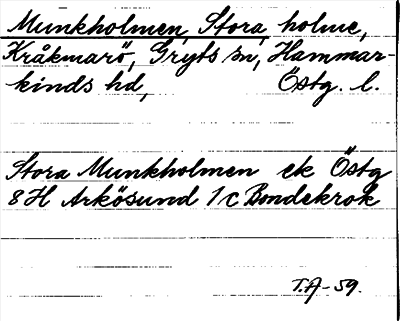 Munkholmen, Stora, holme,
Kråkmarö, Gryts sn, Hammar-
kinds hd, Östg. l.
Stora Munkholmen ek Östg
8H Arkösund 1c Bondekrok
T.A-59.